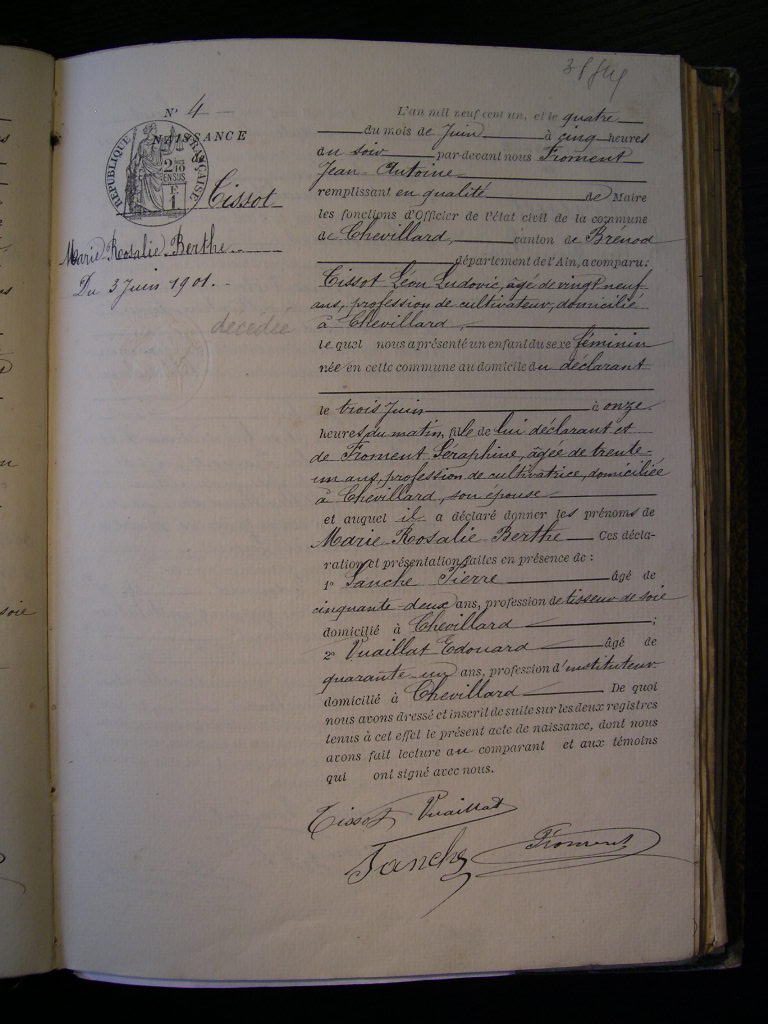 N° 4
NAISSANCE
RÉPUBLIQUE FRANÇAISE
Tissot
Marie Rosalie Berthe
Du 3 Juin 1901.
décédée
L'an mil neuf cent un, et le quatre
du mois de Juin à cinq heures
du soir par-devant nous Froment
Jean Antoine
remplissant en qualité de Maire
les fonctions d'Officier de l'état civil de la commune
de Chevillard, canton de Brénod
département de l'Ain, a comparu:
Tissot Léon Ludovic, âgé de vingt neuf
ans, profession de cultivateur, domicilié
à Chevillard,
le quel nous a présenté un enfant du sexe féminin
née en cette commune au domicile du déclarant
le trois Juin à onze
heures du matin, fille de lui déclarant et
de Froment Séraphine, âgée de trente-
un ans, profession de cultivatrice, domiciliée
à Chevillard, son épouse
et auquel il a déclaré donner les prénoms de
Marie Rosalie Berthe Ces décla-
ration et présentation faites en présence de :
1° Tanche Pierre âgé de
cinquante-deux ans, profession de tisseur de soie
domicilié à Chevillard ;
2° Vuaillat Edouard âgé de
quarante-un ans, profession d'instituteur
domicilié à Chevillard De quoi
nous avons dressé et inscrit de suite sur les deux registres
tenus à cet effet le présent acte de naissance, dont nous
avons fait lecture au comparant et aux témoins
qui ont signé avec nous.
Tissot Vuaillat
Tanche Froment